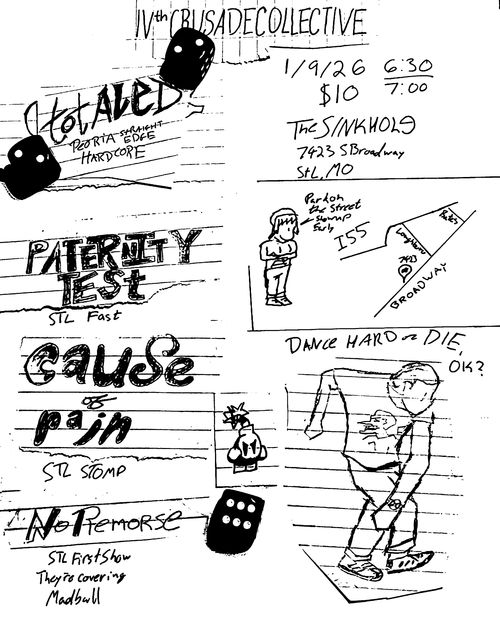 IVth CRUSADE COLLECTIVE
1/9/26 6:30
$10 7:00
The SINKHOLE
7423 S Broadway
StL, MO
totALED
PEORIA STRAIGHT
EDGE
HARDCORE
Park on
the street
Show up
Early
I55
Loughboro
7423
BROADWAY
PATERNITY
TEST
STL Fast
cause
of
pain
STL STOMP
DANCE HARD or DIE,
OK?
No Remorse
STL First Show
They're covering
Madball